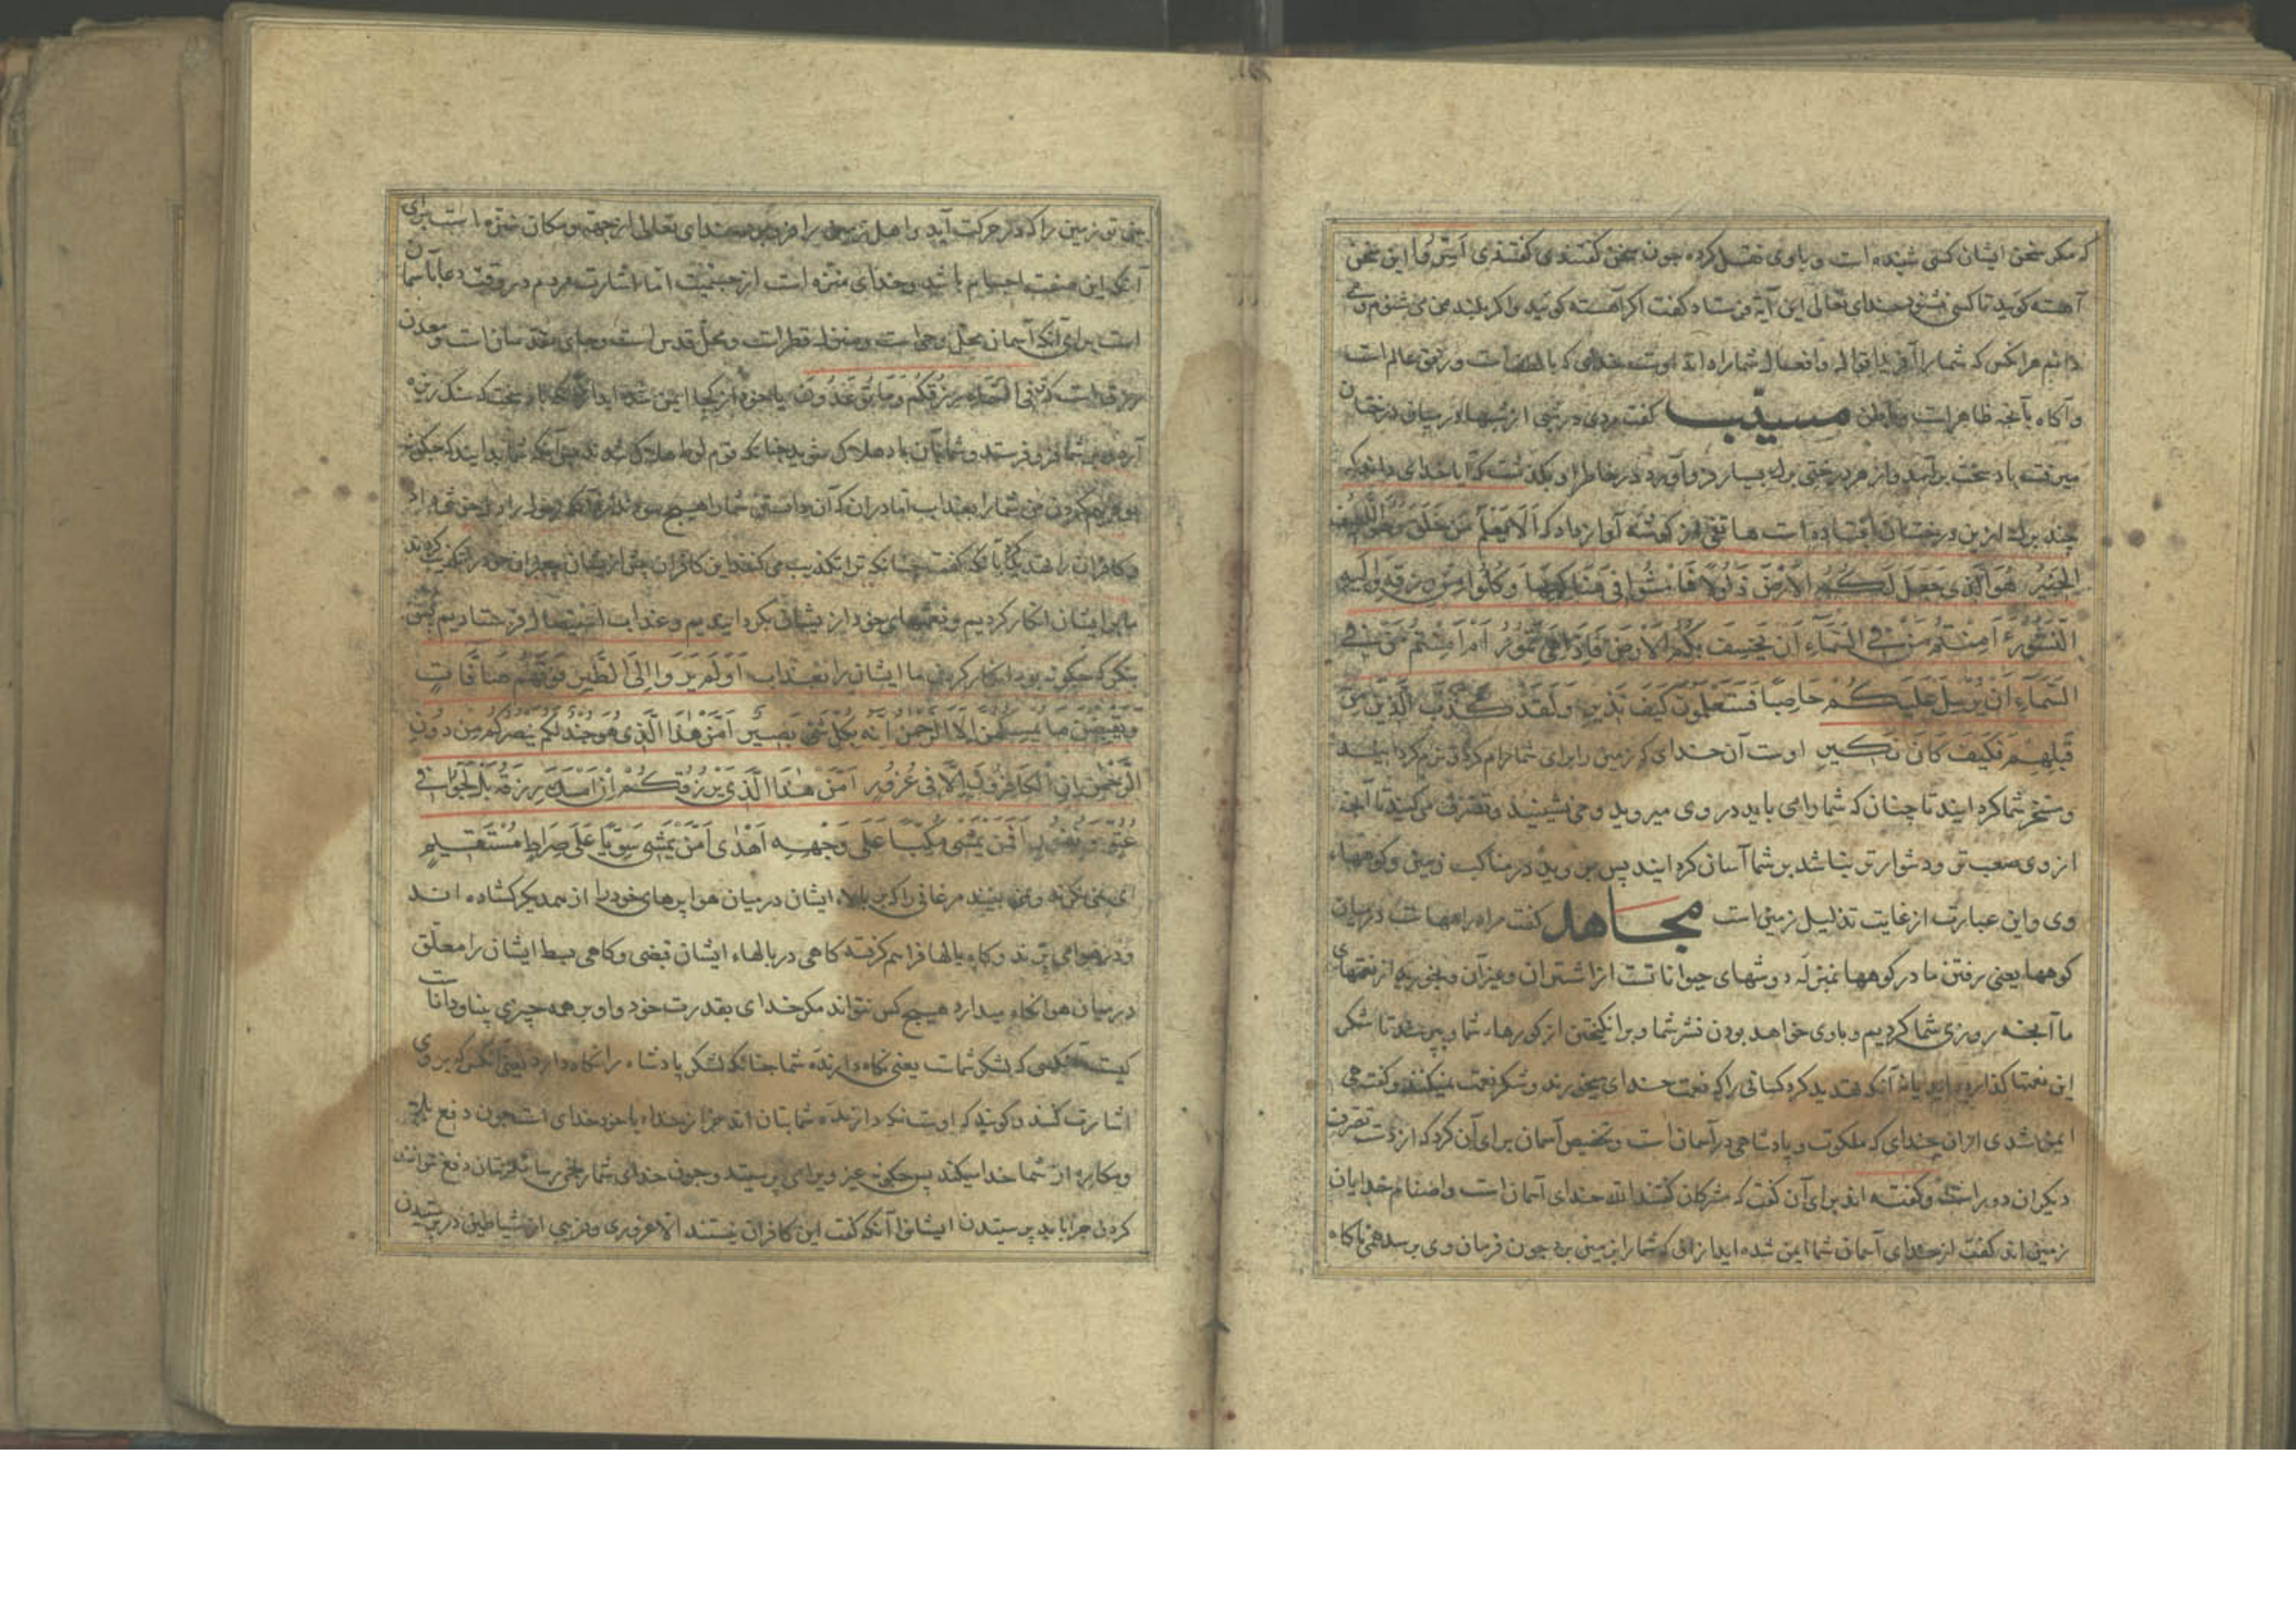 که مکر سخن ایشان کسی شنیده است و با وی نقل کرده چون سخن کفتندی کفتندی اسروا این سخن
آهسته کویید تا کسی نشنود خدای تعالی این آیة فرستاد کفت اکر آهسته کویید واکر بلند من می شنوم و می
دانم هر انکس که شما را آفرید اقوال وافعال شما را داند اوست خدای که بالطافت ورفق عالم است
وآکاه بآنچه ظاهر است وباطن مسیّب کفت مردی در شبی از شبهاء در میان درختان
میرفت باد سخت برآمد واز هر درختی برك بسیار فرو آورد در خاطر او بکذشت که آیا خدای داند که
چند برك ازین درختان افتاده است هاتفی از کوشه آواز داد که اَلَا یَعْلَمُ مَنْ خَلَقَ وَهُوَ اللَّطِیفُ
الْخَبِیرُ هُوَ الَّذِی جَعَلَ لَکُمُ الْاَرْضَ ذَلُولًا فَامْشُوا فِی مَنَاکِبِهَا وَکُلُوا مِنْ رِزْقِهِ وَاِلَیْهِ
النُّشُورُ ءَاَمِنْتُمْ مَنْ فِی السَّمَاءِ اَنْ یَخْسِفَ بِکُمُ الْاَرْضَ فَاِذَا هِیَ تَمُورُ اَمْ اَمِنْتُمْ مَنْ فِی
السَّمَاءِ اَنْ یُرْسِلَ عَلَیْکُمْ حَاصِبًا فَسَتَعْلَمُونَ کَیْفَ نَذِیرِ وَلَقَدْ کَذَّبَ الَّذِینَ مِنْ
قَبْلِهِمْ فَکَیْفَ کَانَ نَکِیرِ اوست آن خدای که زمین را برای شما رام کرد و نرم کردانید
ومسخر شما کردانید تا چنان که شما را می باید در وی میروید و می نشینید وتصرف می کنید تا آنچه
از وی صعب تر ودشوارتر بناشد بر شما آسان کردانید پس بروید در مناکب زمینی وکوهها
وی واین عبارت از غایت تذلیل زمین است مجاهد کفت مراد راههاست در میان
کوهها یعنی رفتن ما در کوهها بمنزله دوشهای حیوانات است از اشتران وغیر آن وبخورید از نعمتهای
ما آنچه روزی شما کردیم وباوی خواهد بودن نشر شما وبرانکیختن از کورها شما وپرسند تا شکر
این نعمتها کذارده اید یا نه آنکه تهدید کرد کسانی را که نعمت خدای میخورند وشکر نعمت نمیکنند وکفت می
ایمن شدی از آن خدای که ملکوت و پادشاهی در آسمان است وتخصیص آسمان برای آن کرد که از دست تصرف
دیکران دور است وکفته اند برای آن کفت که مشرکان کفتند الله خدای آسمان است واصنام خدایان
زمین اند کفت از خدای آسمان شما ایمن شده اید از آن که شما را بزمین برد چون فرمان وی برسد همی ناکاه
بینی تو زمین را که در حرکت آید واهل زمین را فرو برد خدای تعالی از جهة ومکان منزه است برای
آنکه این صفت اجسام باشد وخدای منزه است از جسمیت اما اشارت مردم در وقت دعا بآسمان
است برای آنکه آسمان محل وحی است ومنزل قطر است ومحل قدس است وجای مقدسان است ومعدن
رزق است که فِی السَّمَاءِ رِزْقُکُمْ وَمَا تُوعَدُونَ یا خود از کجا ایمن شده اید از آنکه باد سخت که سنک ریزه
آرد بر شما فرو فرستد وشما بآن باد هلاک شوید چنانکه قوم لوط هلاک شدند پس آنکه شما بدانید که چکونه
بود بیم کردن من شما را بعذاب اما در آن که آن دانستن شما را هیچ سود ندارد آنکه رسول را دل خوشی داد
وکافران را تهدید کرد بآنکه کفت چنانکه ترا تکذیب می کنند این کافران پیش از ایشان پیغمبران خود را تکذیب کردند
ما بر ایشان انکار کردیم ونعمتهای خود از ایشان بکردانیدیم وعذاب استیصال فرستادیم پس
بنکر که چکونه بود انکار کردن ما ایشان را بعذاب اَوَلَمْ یَرَوْا اِلَی الطَّیْرِ فَوْقَهُمْ صَافَّاتٍ
وَیَقْبِضْنَ مَا یُمْسِکُهُنَّ اِلَّا الرَّحْمٰنُ اِنَّهُ بِکُلِّ شَیْءٍ بَصِیرٌ اَمَّنْ هٰذَا الَّذِی هُوَ جُنْدٌ لَکُمْ یَنْصُرُکُمْ مِنْ دُونِ
الرَّحْمٰنِ اِنِ الْکَافِرُونَ اِلَّا فِی غُرُورٍ اَمَّنْ هٰذَا الَّذِی یَرْزُقُکُمْ اِنْ اَمْسَكَ رِزْقَهُ بَلْ لَجُّوا فِی
عُتُوٍّ وَنُفُورٍ اَفَمَنْ یَمْشِی مُکِبًّا عَلَی وَجْهِهِ اَهْدٰی اَمَّنْ یَمْشِی سَوِیًّا عَلَی صِرَاطٍ مُسْتَقِیمٍ
ای نمی نکرند ونمی بینند مرغانی را که بر بالاء ایشان در میان هوا پرهای خود را از همدیکر کشاده اند
ودر هوا می پرند وکاه بالها فراهم کرفته کاهی در بالهاء ایشان قبضی وکاهی بسط ایشان را معلّق
در میان هوا نکاه میدارد هیچ کس نتواند مکر خدای بقدرت خود واو بر همه چیزی بینا ودانا است
کیست آنکس که لشکر شماست یعنی نکاه دارنده شما چنانکه لشکر پادشاه را نکاه دارد یعنی آنکس که بر وی
اشارت کنند وکویند که اوست نکه دارنده شما بتان اند جز از خداء یا خود خدای است چون دفع
ومکاره از شما خدا میکند پس چکونه غیر ویرا می پرستید وچون خدای شما را رنجی رساند بتان دفع نتوانند
کردن چرا باید پرستیدن ایشانرا آنکه کفت این کافران نیستند الا غروری وفریبی از شیاطین در پرستیدن